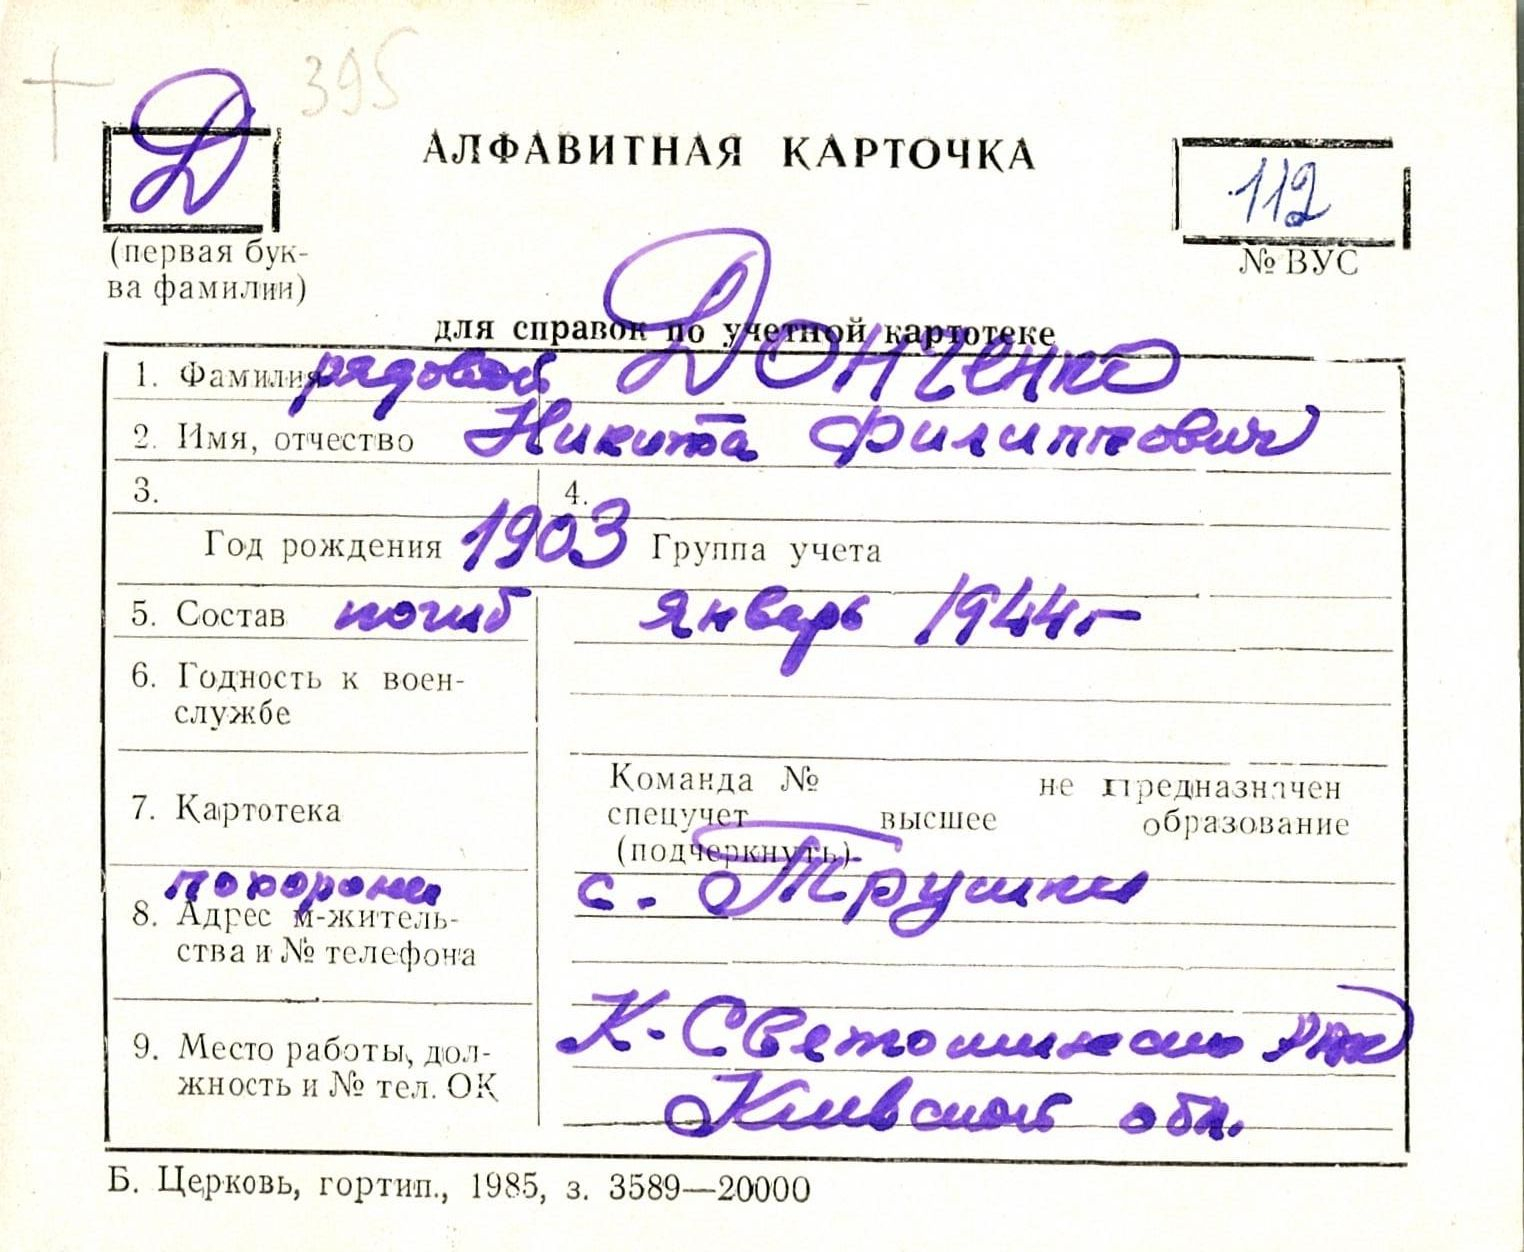 395
Д
АЛФАВИТНАЯ КАРТОЧКА
112
(первая бук-
ва фамилии)
№ ВУС
для справок по учетной картотеке
1. Фамилия рядовой Донченко
2. Имя, отчество Никита Филиппович
3. 4.
Год рождения 1903 Группа учета
5. Состав погиб январь 1944г
6. Годность к воен-
службе
7. Картотека
Команда № не предназначен
спецучет высшее образование
(подчеркнуть)
похоронен с. Трушки
8. Адрес м-житель-
ства и № телефона
К-Светошинского р-на
9. Место работы, дол-
жность и № тел. ОК
Киевской обл.
Б. Церковь, гортип., 1985, з. 3589—20000